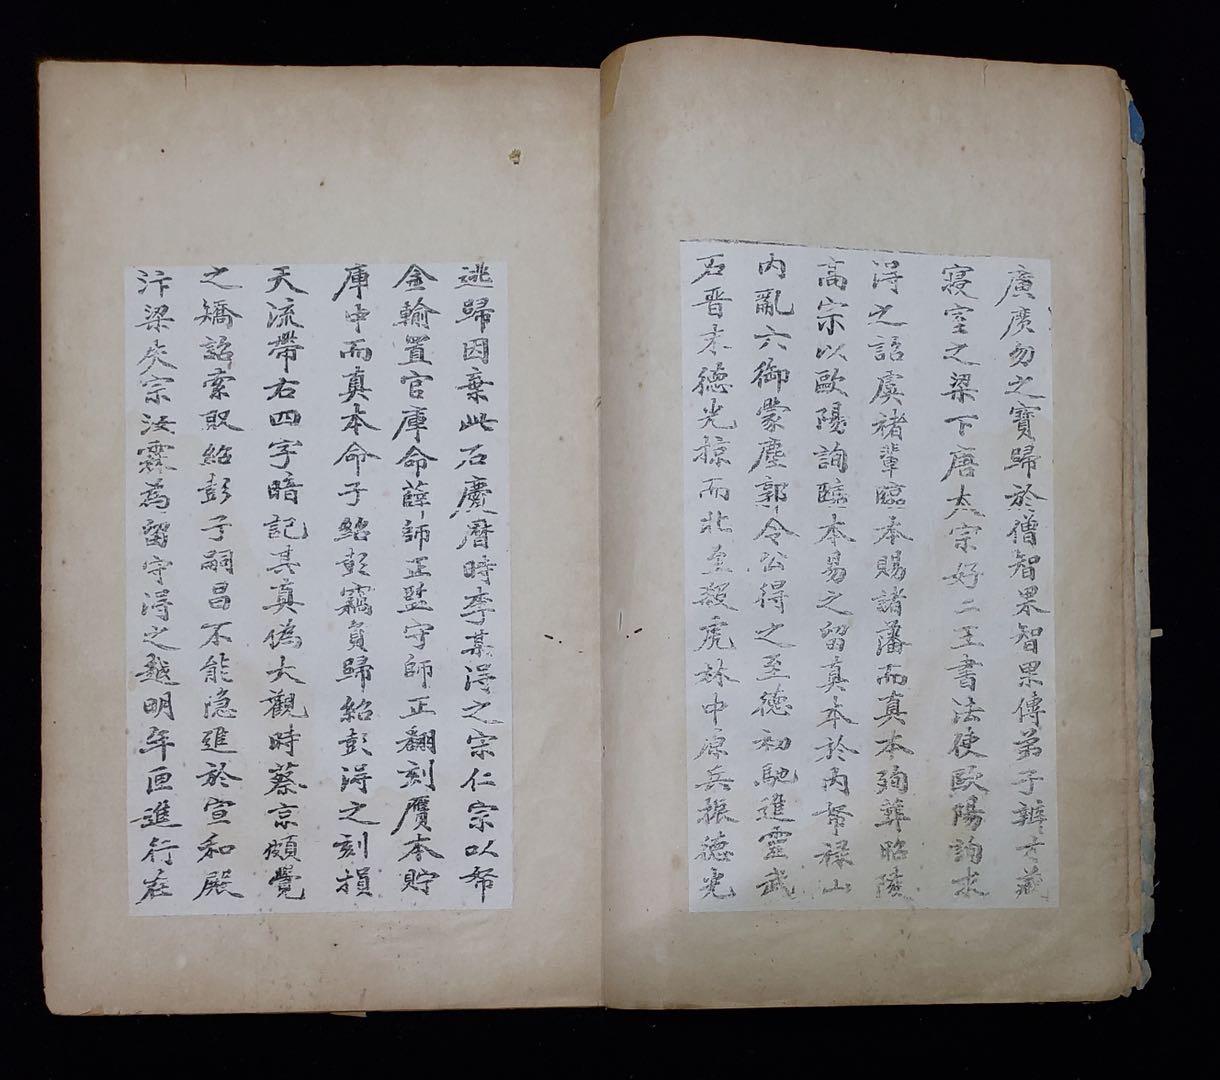 廣廣勿之寶歸於僧智果智果傳弟子辨才藏
寢室之梁下唐太宗好二王書法使歐陽詢求
得之詔虞褚輩臨本賜諸藩而真本殉葬昭陵
高宗以歐陽詢臨本易之留真本於內帑祿山
內亂六御蒙塵郭令公得之至德初馳進靈武
石晉末德光掠而北至殺虎林中原兵振德光
逃歸因棄此石慶曆時李某得之宋仁宗以帑
金輸置官庫命薛師正監守師正翻刻贗本貯
庫中而真本命子紹彭竊負歸紹彭得之刻損
天流帶右四字暗記其真偽大觀時蔡京頗覺
之矯詔索取紹彭子嗣昌不能隱進於宣和殿
汴梁失宗汝霖為留守得之越明年匣進行在